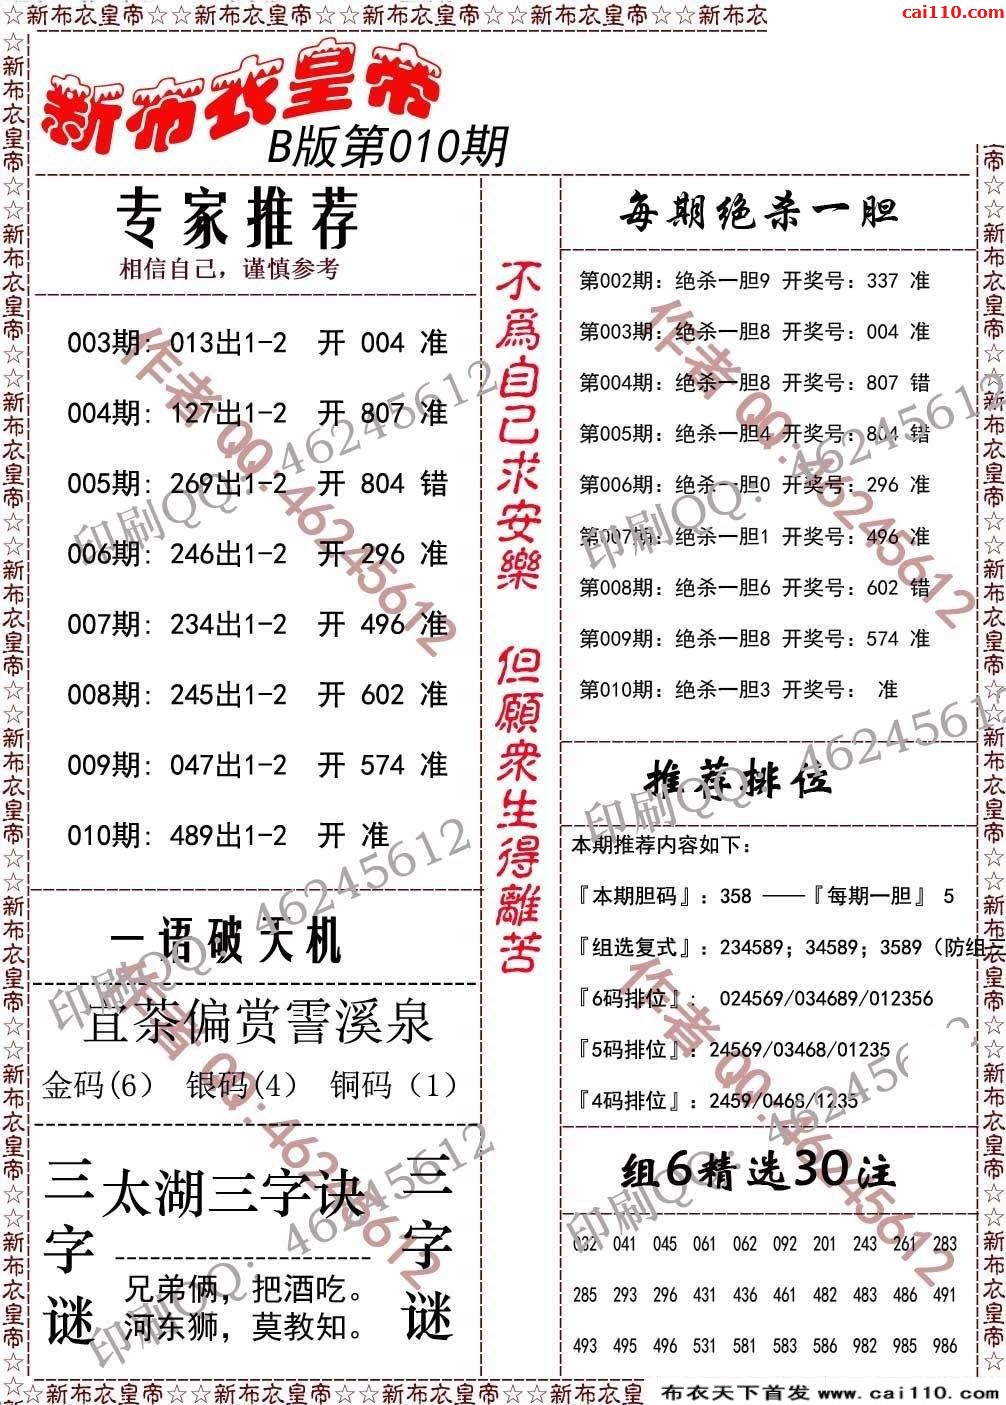 ☆新布衣皇帝☆新布衣皇帝☆新布衣皇帝☆新布衣皇帝☆新布衣皇帝☆新布衣
cai110.com
新布衣皇帝
B版第010期
专家推荐
相信自己，谨慎参考
003期: 013出1-2 开 004 准
004期: 127出1-2 开 807 准
005期: 269出1-2 开 804 错
006期: 246出1-2 开 296 准
007期: 234出1-2 开 496 准
008期: 245出1-2 开 602 准
009期: 047出1-2 开 574 准
010期: 489出1-2 开 准
一语破天机
宜茶偏赏霅溪泉
金码(6) 银码(4) 铜码（1）
三字谜
太湖三字诀
兄弟俩，把酒吃。
河东狮，莫教知。
三字谜
不為自己求安樂 但願眾生得離苦
每期绝杀一胆
第002期: 绝杀一胆9 开奖号: 337 准
第003期: 绝杀一胆8 开奖号: 004 准
第004期: 绝杀一胆8 开奖号: 807 错
第005期: 绝杀一胆4 开奖号: 804 错
第006期: 绝杀一胆0 开奖号: 296 准
第007期: 绝杀一胆1 开奖号: 496 准
第008期: 绝杀一胆6 开奖号: 602 错
第009期: 绝杀一胆8 开奖号: 574 准
第010期: 绝杀一胆3 开奖号: 准
推荐排位
本期推荐内容如下:
『本期胆码』: 358 ——『每期一胆』 5
『组选复式』: 234589; 34589; 3589（防组三
『6码排位』: 024569/034689/012356
『5码排位』: 24569/03468/01235
『4码排位』: 2459/0468/1235
组6精选30注
032 041 045 061 062 092 201 243 261 283
285 293 296 431 436 461 482 483 486 491
493 495 496 531 581 583 586 982 985 986
作者 QQ: 46245612
印刷QQ: 46245612
☆新布衣皇帝☆新布衣皇帝☆新布衣皇帝☆新布衣皇帝☆新布衣皇
布衣天下首发 www.cai110.com